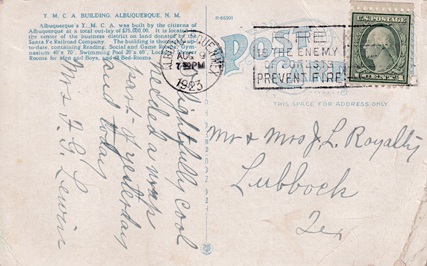 Y. M. C. A. BUILDING, ALBUQUERQUE, N. M.
Albuquerque's Y. M. C. A. was built by the citizens of
Albuquerque at a total outlay of $75,000.00. It is located in
the corner of the business district on land donated by the
Santa Fe Railroad Company. The building is thoroughly up-
to-date, containing Reading, Social and Game Rooms, Gym-
nasium 40 x 70, Swimming Pool 20 x 40, Locker
Rooms for Men and Boys, and Bed-Rooms.
POST
ALBUQUERQUE, N. MEX
AUG
7-30PM
1923
FIRE
IS THE ENEMY
OF FORESTS
PREVENT FIRE
U.S. POSTAGE
1 CENT 1
THIS SPACE FOR ADDRESS ONLY.
Delightfully cool
needed a wrap
part of yesterday
and today
Mrs F. G. Lewis
Mr & Mrs J. L. Royalty
Lubbock
Tex